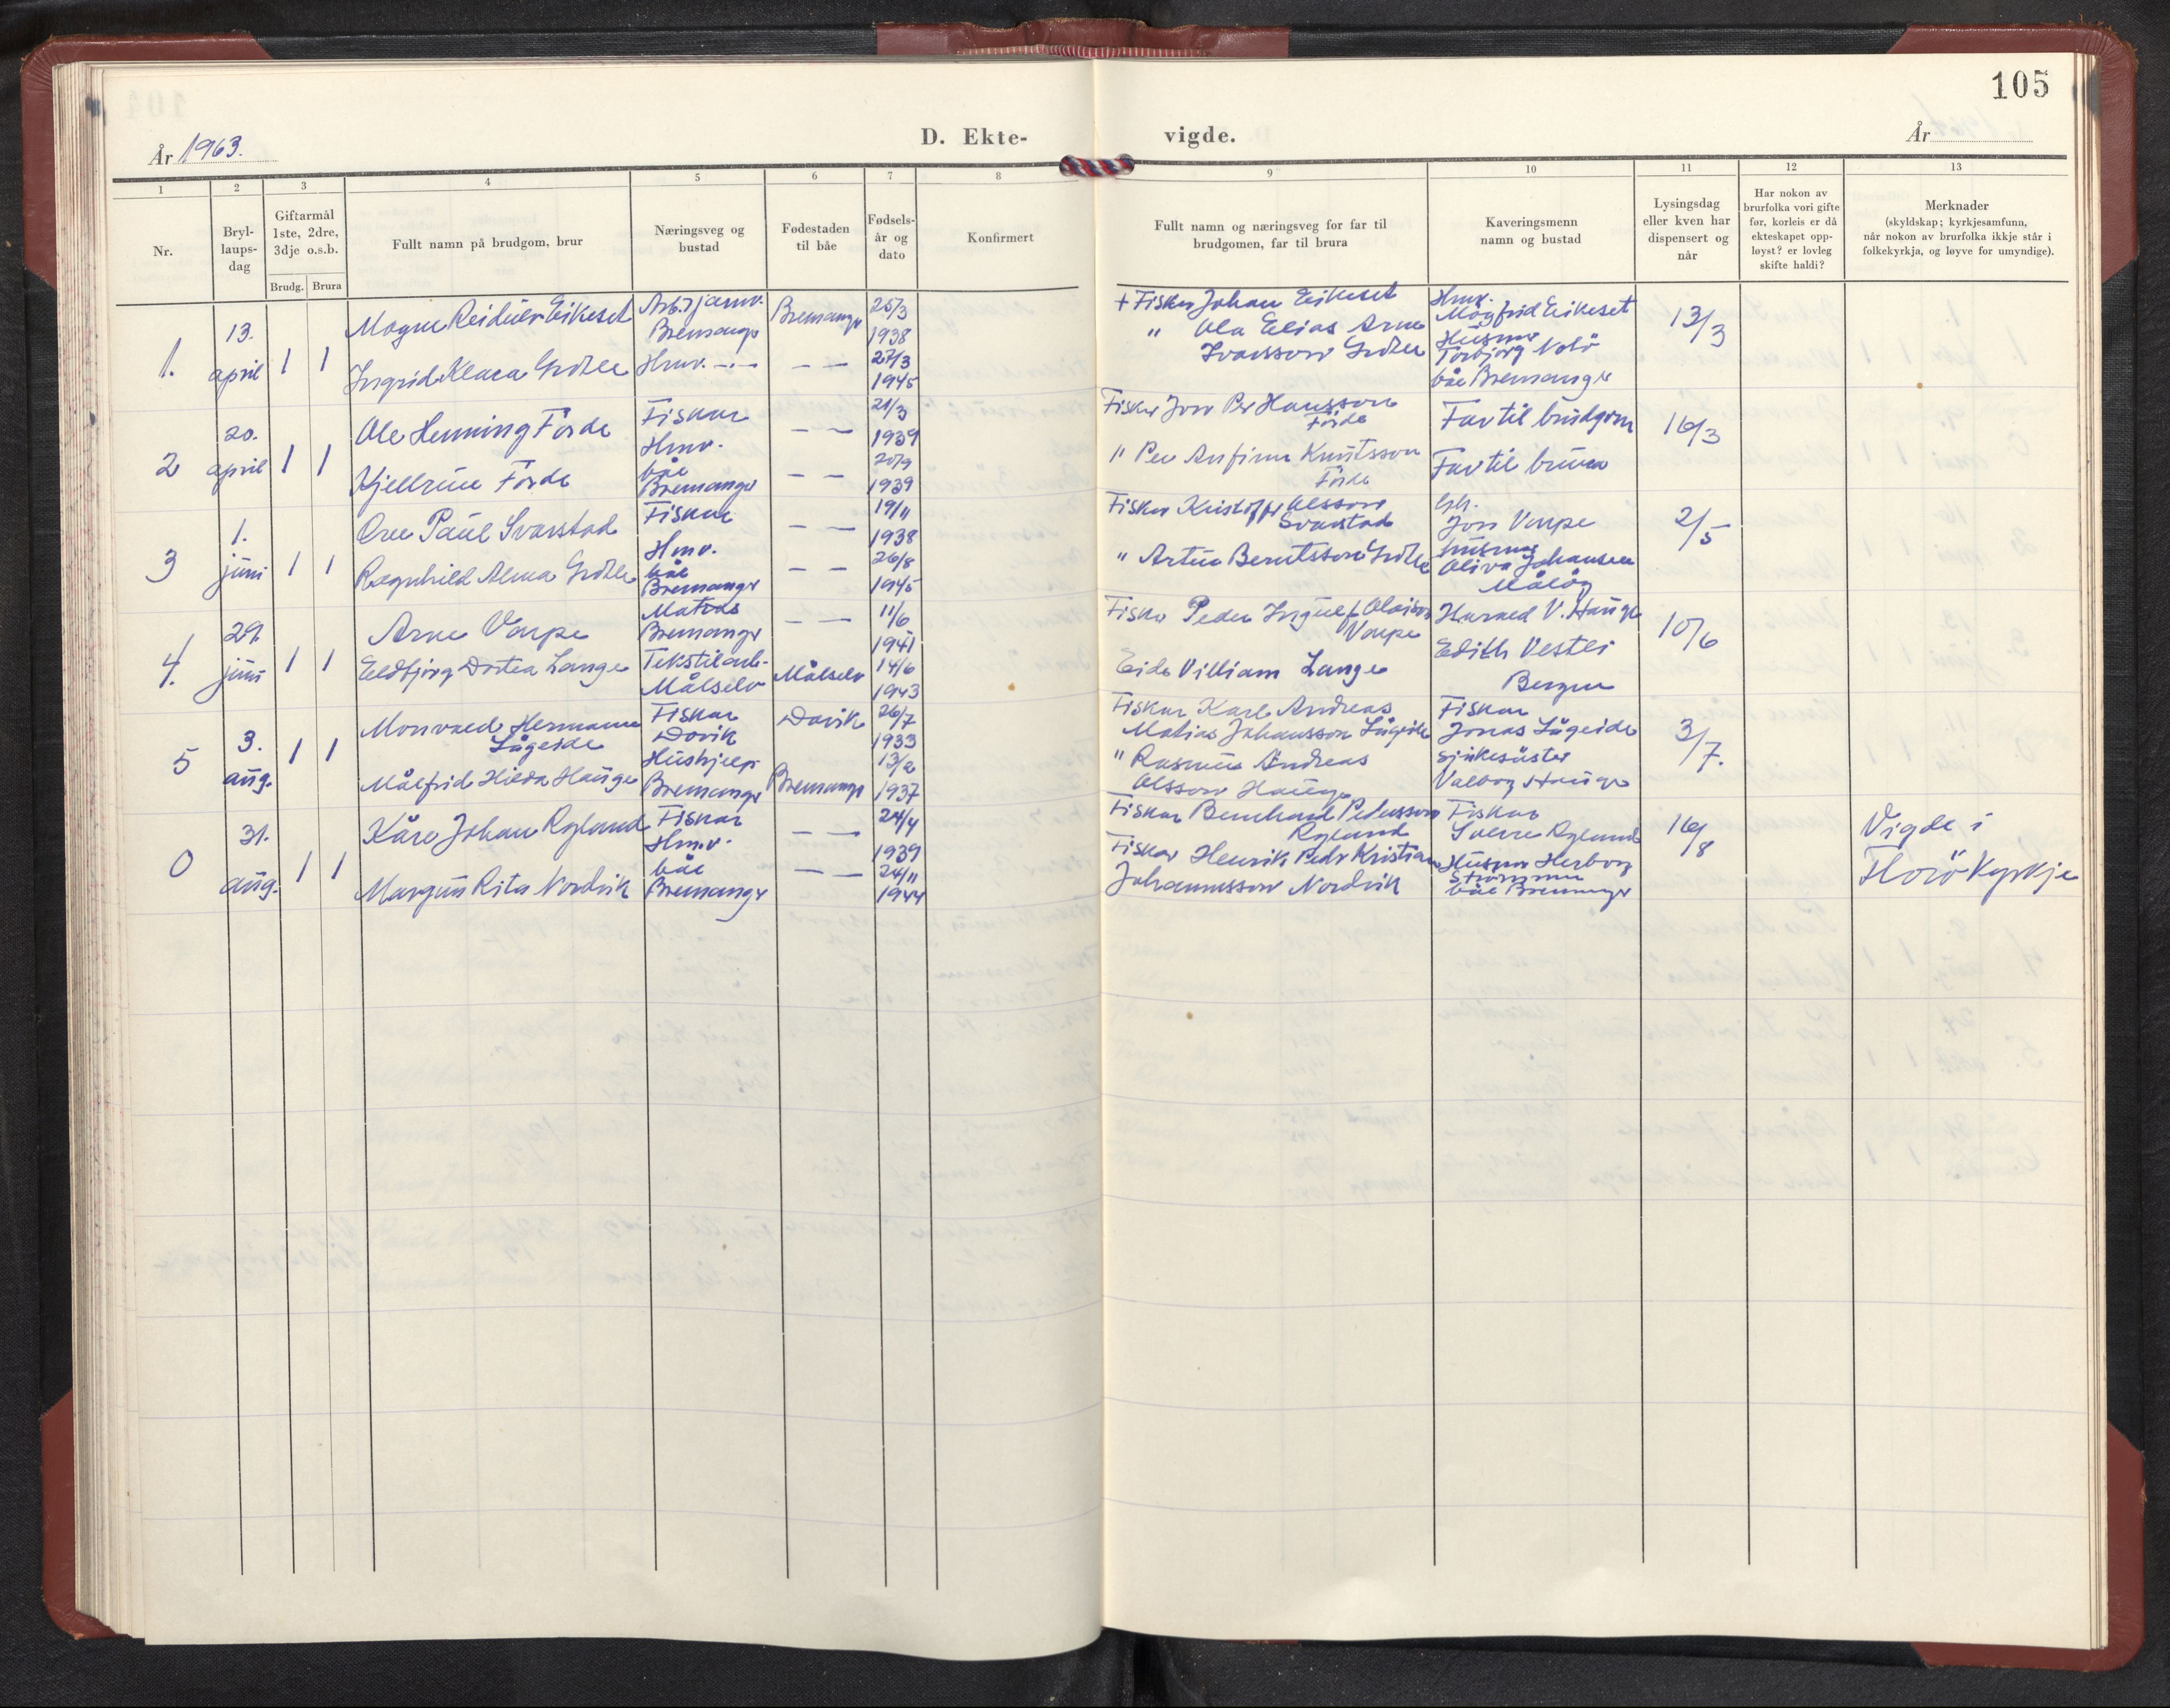 105
År 1963.
D. Ekte-
vigde.
År
1
2
3
4
5
6
7
8
9
10
11
12
13
Nr.
Bryl-
laups-
dag
Giftarmål
1ste, 2dre,
3dje o.s.b.
Brudg.
Brura
Fullt namn på brudgom, brur
Næringsveg og
bustad
Fødestaden
til båe
Fødsels-
år og
dato
Konfirmert
Fullt namn og næringsveg for far til
brudgomen, far til brura
Kaveringsmenn
namn og bustad
Lysingsdag
eller kven har
dispensert og
når
Har nokon av
brurfolka vori gifte
før, korleis er då
ekteskapet opp-
løyst? er lovleg
skifte haldi?
Merknader
(skyldskap; kyrkjesamfunn,
når nokon av brurfolka ikkje står i
folkekyrkja, og løyve for umyndige).
1.
13.
april
1 1
Magne Reidulv Eikeset
Arb. i jarnv.
Bremanger
Bremanger
25/3
1938
Ingrid Klara Grotle
Hmv. -"-
— —
27/3
1945
+ Fiskar Johan Eikeset
" Ola Elias Arne
Ivarsson Grotle
Hmv.
Magfrid Eikeset
Husmor
Torbjørg Nolö
båe Bremanger
13/3
2
20.
april
1 1
Ole Henning Förde
Fiskar
— —
21/3
1939
Kjellrun Förde
Hmv.
båe
Bremanger
— —
20/9
1939
Fiskar Jon Per Hansson
Förde
" Per Anfinn Knutsson
Förde
Far til brudgom
Far til brura
16/3
3
1.
juni
1 1
Ove Paul Svarstad
Fiskar
— —
19/11
1938
Ragnhild Alma Grotle
Hmv.
båe
Bremanger
— —
26/8
1945
Fiskar Kristoffer Olsson
Svarstad
" Artur Berntsson Grotle
Jon Varpe
husmor
Oliva Johansen
Måløy
2/5
4.
29.
juni
1 1
Arne Varpe
Matros
Bremanger
— —
11/6
1941
Eldbjørg Dortea Lange
Tekstilarb.
Målselv
Målselv
14/6
1943
Fiskar Peder Ingulf Olaison
Varpe
Eide Villiam Lange
Harald V. Hauge
Edith Vestli
Bergen
10/6
5
3.
aug.
1 1
Monvald Hermann
Lågeide
Fiskar
Davik
Davik
26/7
1933
Målfrid Hilda Hauge
Hushjelp
Bremanger
Bremanger
13/2
1937
Fiskar Karl Andreas
Matias Johansson Lågeide
" Rasmus Andreas
Olsson Hauge
Fiskar
Jonas Lågeide
sjukesüster
Valborg Hauge
3/7.
0
31.
aug.
1 1
Kåre Johan Rylund
Fiskar
— —
24/4
1939
Margun Rita Nordvik
Hmv.
båe
Bremanger
— —
24/11
1944
Fiskar Bernhard Pedersson
Rylund
Fiskar Henrik Peder Kristian
Johannesson Nordvik
Fiskar
Sverre Rylund
Husmor Herborg
Strømmen
båe Bremanger
16/8
Vigde i
Florö Kyrkje